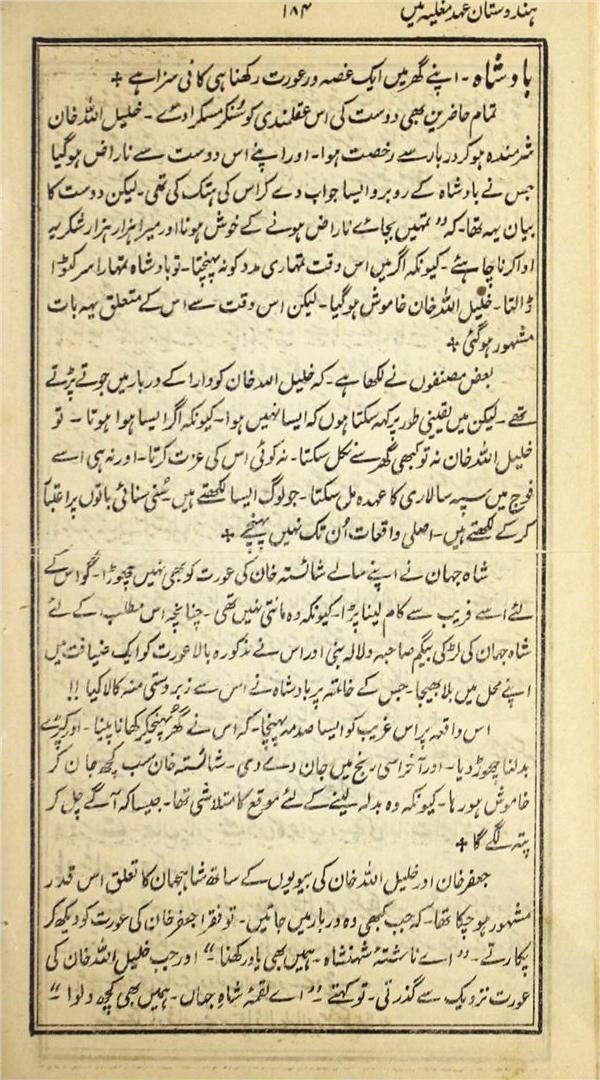 ہندوستان عہد مغلیہ میں ۱۸۴
بادشاہ ۔ اپنے گھر میں ایک غصہ ور عورت رکھنا ہی کافی سزا ہے +
تمام حاضرین بھی دوست کی اس عقلمندی کو سُنکر مسکرا دئے ۔ خلیل اللہ خان
شرمندہ ہو کر دربار سے رخصت ہوا ۔ اور اپنے اس دوست سے ناراض ہو گیا
جس نے بادشاہ کے روبرو ایسا جواب دے کر اس کی ہتک کی تھی ۔ لیکن دوست کا
بیان یہہ تھا ۔ کہ ”تمہیں بجائے ناراض ہونے کے خوش ہونا اور میرا ہزار ہزار شکریہ
ادا کرنا چاہئے ۔ کیونکہ اگر میں اس وقت تمہاری مدد کو نہ پہنچتا ۔ تو بادشاہ تمہارا سر کٹوا
ڈالتا ۔ خلیل اللہ خان خاموش ہو گیا ۔ لیکن اس وقت سے اس کے متعلق یہہ بات
مشہور ہو گئی +
بعض مصنفوں نے لکھا ہے ۔ کہ خلیل اللہ خان کو دارا کے دربار میں جوتے پڑتے
تھے ۔ لیکن میں یقینی طور پر کہہ سکتا ہوں کہ ایسا نہیں ہوا ۔ کیونکہ اگر ایسا ہوا ہوتا ۔ تو
خلیل اللہ خان نہ تو کبھی گھر سے نکل سکتا ۔ نہ کوئی اس کی عزت کرتا ۔ اور نہ ہی اسے
فوج میں سپہ سالاری کا عہدہ مل سکتا ۔ جو لوگ ایسا لکھتے ہیں سُنی سنائی باتوں پر اعتبار
کر کے لکھتے ہیں ۔ اصلی واقعات اُن تک نہیں پہنچے +
شاہ جہان نے اپنے سالے شائستہ خان کی عورت کو بھی نہیں چھوڑا ۔ گو اس کے
لئے اسے فریب سے کام لینا پڑا ۔ کیونکہ وہ مانتی نہیں تھی ۔ چنانچہ اس مطلب کے لئے
شاہ جہان کی لڑکی بیگم صاحبہ دلالہ بنی اور اس نے مذکورہ بالا عورت کو ایک ضیافت میں
اپنے محل میں بلا بھیجا ۔ جس کے خاتمہ پر بادشاہ نے اس سے زبردستی منہ کالا کیا !!
اس واقعہ پر اس غریب کو ایسا صدمہ پہنچا ۔ کہ اس نے گھر پہنچکر کھانا پینا ۔ اور کپڑے
بدلنا چھوڑ دیا ۔ اور آخر اسی رنج میں جان دے دی ۔ شائستہ خان سب کچھ جان کر
خاموش ہو رہا ۔ کیونکہ وہ بدلہ لینے کے لئے موقع کا متلاشی تھا ۔ جیسا کہ آگے چل کر
پتہ لگے گا +
جعفر خان اور خلیل اللہ خان کی بیویوں کے ساتھ شاہجہان کا تعلق اس قدر
مشہور ہو چکا تھا ۔ کہ جب کبھی وہ دربار میں جاتیں ۔ تو فقرا جعفر خان کی عورت کو دیکھ کر
پکارتے ۔ ”اے ناشتۂ شہنشاہ ۔ ہمیں بھی یاد رکھنا“ اور جب خلیل اللہ خان کی
عورت نزدیک سے گذرتی ۔ تو کہتے ۔ ”اے لقمۂ شاہ جہاں ۔ ہمیں بھی کچھ دلوا“